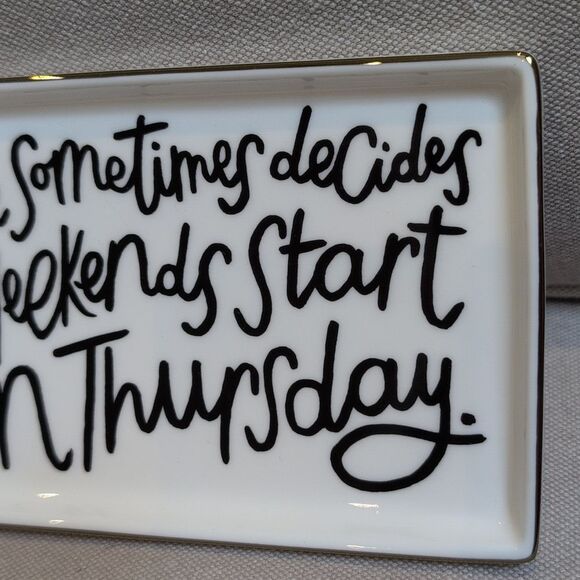 sometimes decides
weekends start
on Thursday.